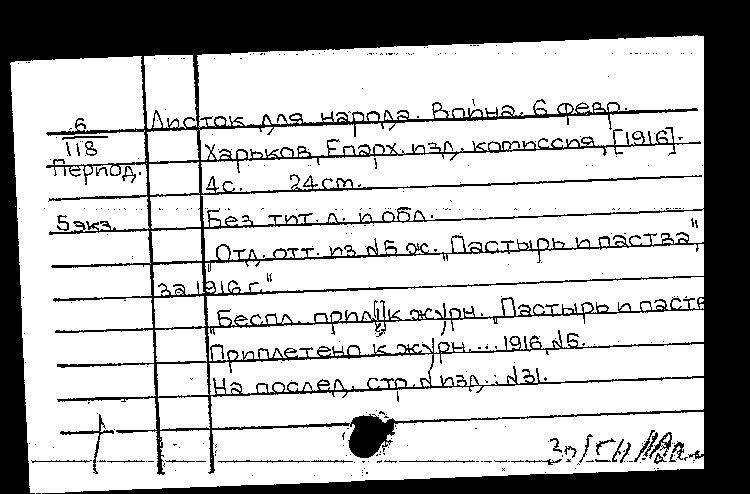 6
118
Период.
5 экз.
Листок для народа. Война. 6 февр.
Харьков, Епарх. изд. комиссия, [1916].
4 с. 24 см.
Без тит. л. и обл.
"Отд. отт. из №5 ж. „Пастырь и паства",
за 1916 г."
"Беспл. прил. к журн. „Пастырь и паств
Приплетено к журн. ... 1916, №5.
На послед. стр. № изд.: №31.